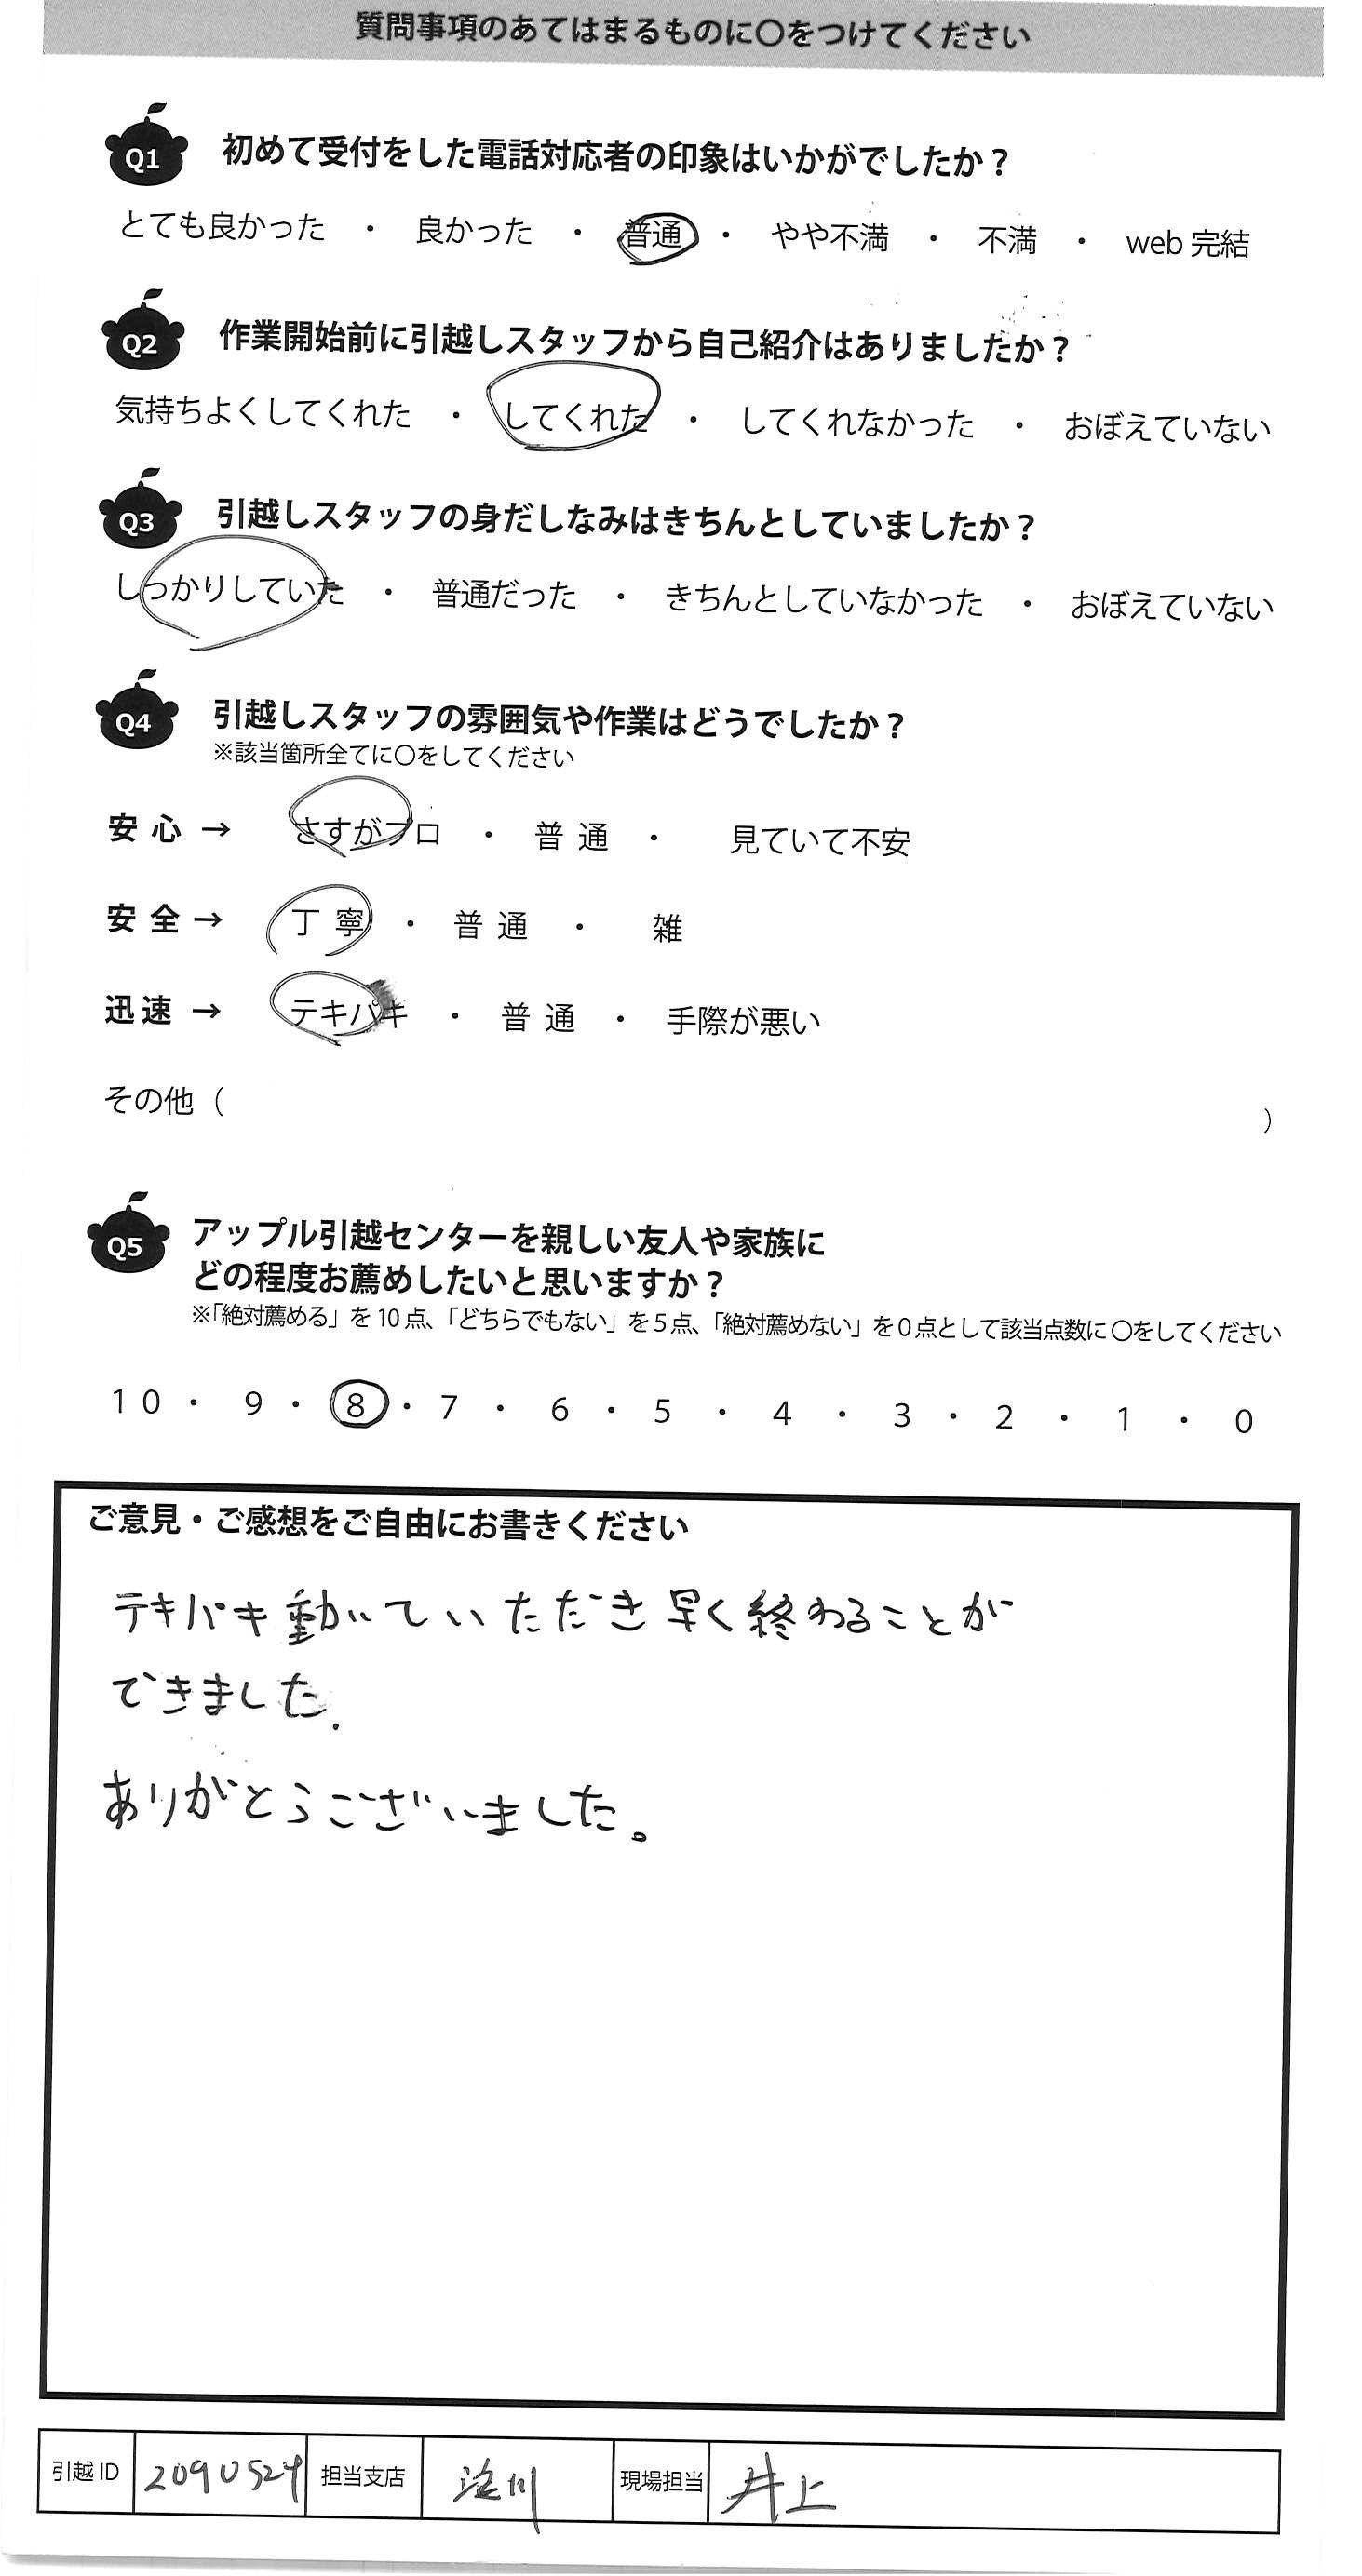 質問事項のあてはまるものに〇をつけてください
Q1 初めて受付をした電話対応者の印象はいかがでしたか？
とても良かった ・ 良かった ・ 普通 ・ やや不満 ・ 不満 ・ web 完結
Q2 作業開始前に引越しスタッフから自己紹介はありましたか？
気持ちよくしてくれた ・ してくれた ・ してくれなかった ・ おぼえていない
Q3 引越しスタッフの身だしなみはきちんとしていましたか？
しっかりしていた ・ 普通だった ・ きちんとしていなかった ・ おぼえていない
Q4 引越しスタッフの雰囲気や作業はどうでしたか？
※該当箇所全てに〇をしてください
安心 → さすがプロ ・ 普通 ・ 見ていて不安
安全 → 丁寧 ・ 普通 ・ 雑
迅速 → テキパキ ・ 普通 ・ 手際が悪い
その他（ ）
Q5 アップル引越センターを親しい友人や家族に
どの程度お薦めしたいと思いますか？
※「絶対薦める」を10点、「どちらでもない」を5点、「絶対薦めない」を0点として該当点数に〇をしてください
10 ・ 9 ・ 8 ・ 7 ・ 6 ・ 5 ・ 4 ・ 3 ・ 2 ・ 1 ・ 0
ご意見・ご感想をご自由にお書きください
テキパキ動いていただき早く終わることが
できました.
ありがとうございました。
引越ID 2090524 担当支店 淀川 現場担当 井上